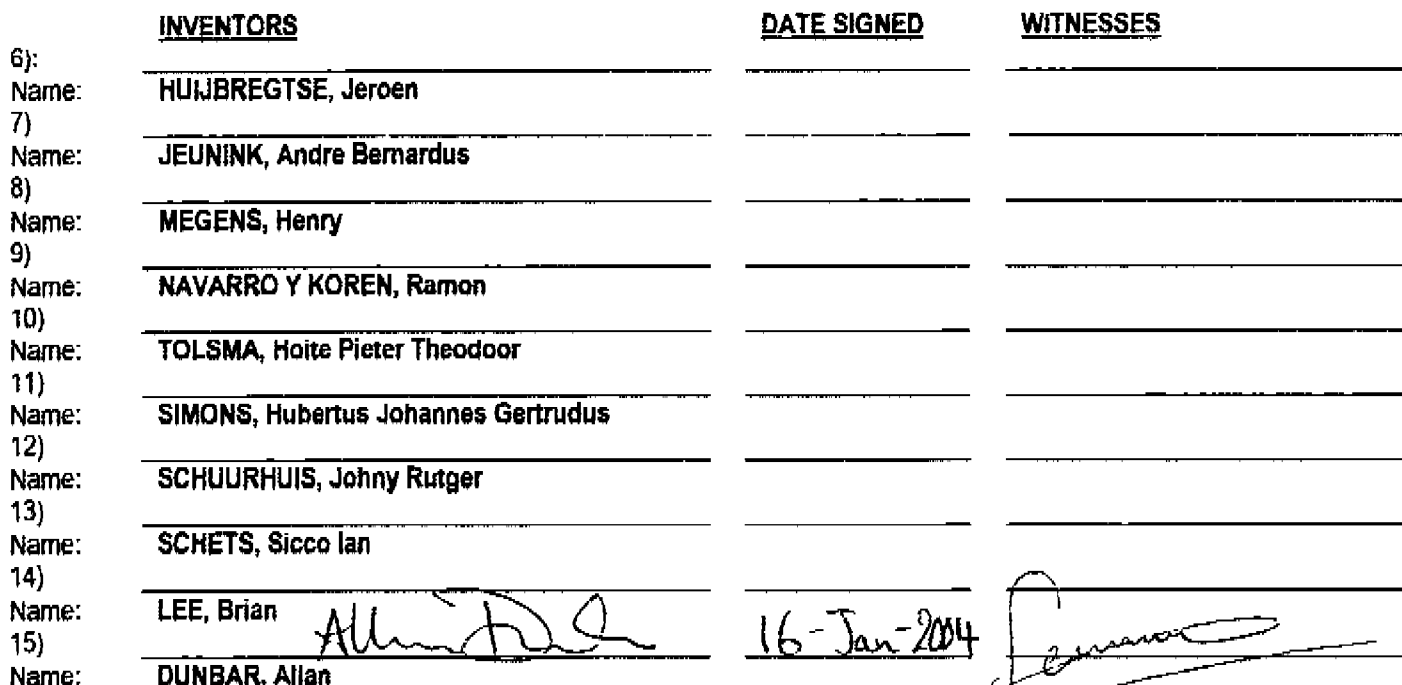 INVENTORS DATE SIGNED WITNESSES
6):
Name: HUIJBREGTSE, Jeroen
7)
Name: JEUNINK, Andre Bernardus
8)
Name: MEGENS, Henry
9)
Name: NAVARRO Y KOREN, Ramon
10)
Name: TOLSMA, Hoite Pieter Theodoor
11)
Name: SIMONS, Hubertus Johannes Gertrudus
12)
Name: SCHUURHUIS, Johny Rutger
13)
Name: SCHETS, Sicco Ian
14)
Name: LEE, Brian
15) 16-Jan-2004
Name: DUNBAR, Allan